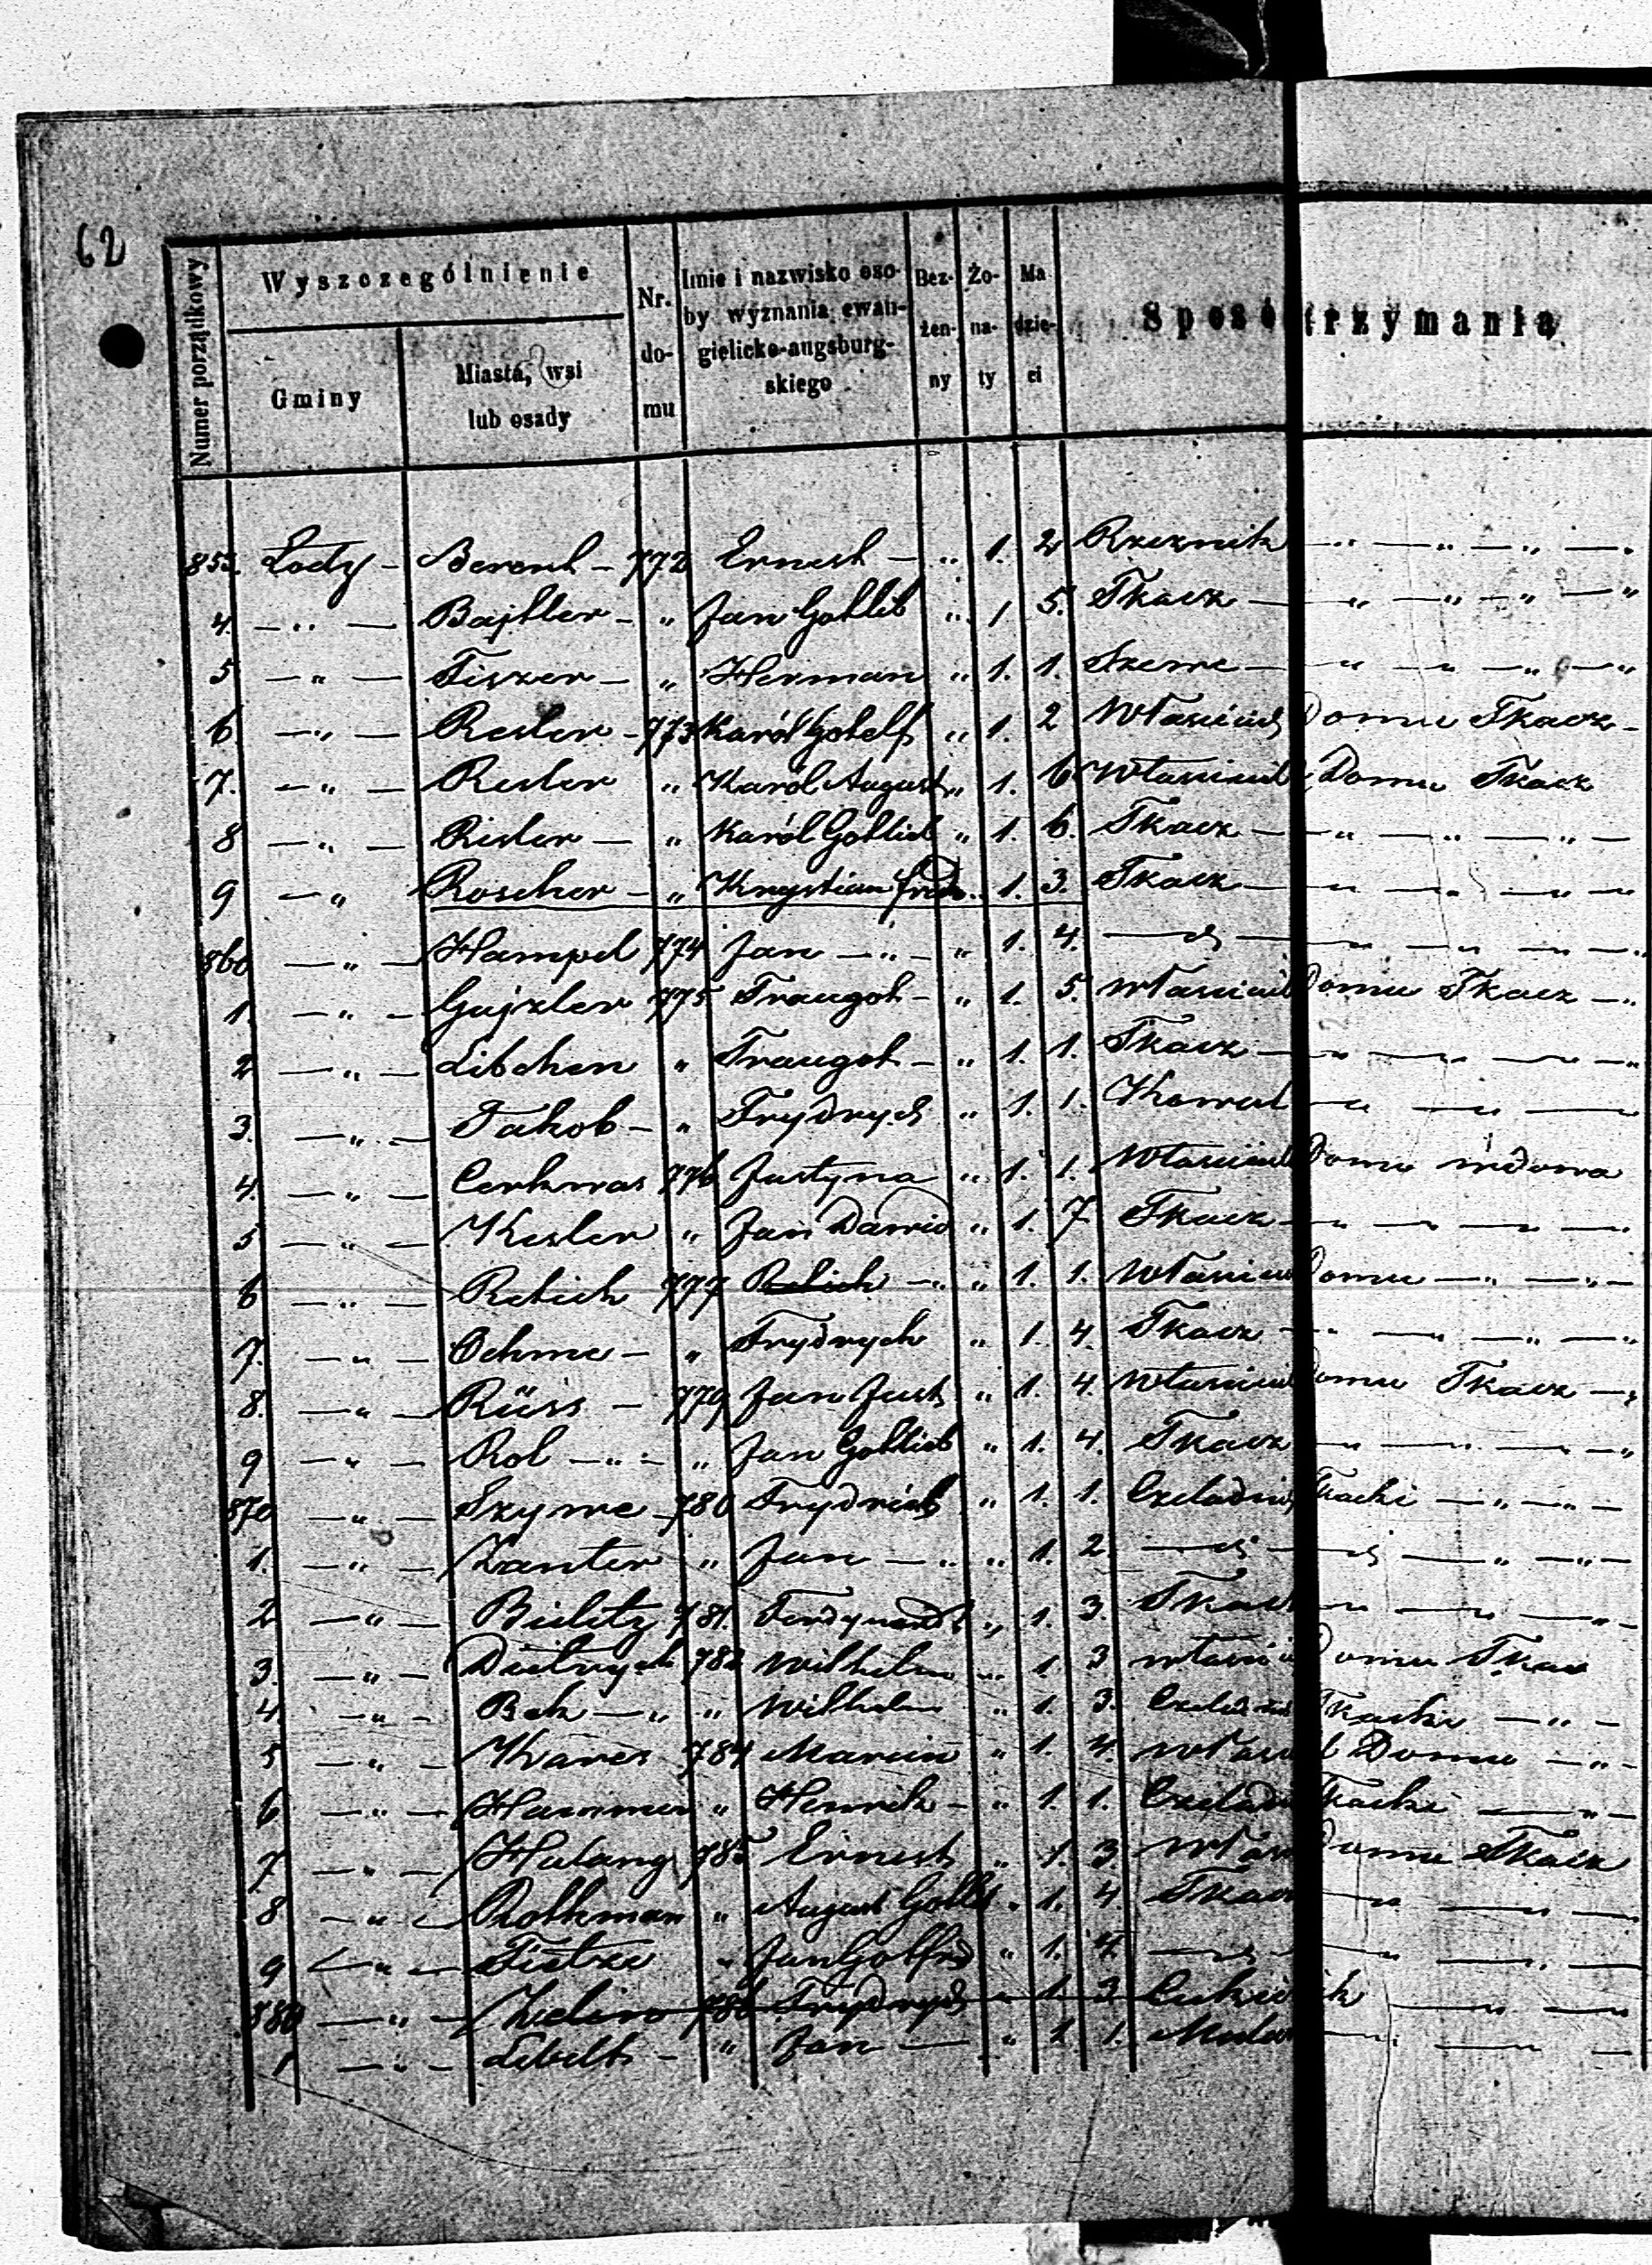 62
Numer porządkowy
Wyszczególnienie
Gminy
Miasta, wsi
lub osady
Nr.
do-
mu
Imie i nazwisko oso-
by wyznania ewan-
gielicko-augsburg-
skiego
Bez-
żen-
ny
Żo-
na-
ty
Ma
dzie-
ci
Sposó trzymania
853. Łody - Berent - 772 Ernest - „ 1. 2 Rzeznik - „ - „ - „ -
4. - „ - Bajtler - „ Jan Gotlib „ 1 5. Tkacz - „ - „ - „ - „
5 - „ - Fiszer - „ Herman „ 1. 1. Szewc - „ - „ - „ - „
6 - „ - Resler - 773 Karól Gotelf „ 1. 2 Właścicil Domu Tkacz -
7. - „ - Resler „ Karól August „ 1. 6 Właścicil Domu Tkacz
8 - „ - Risler - „ Karól Gotlieb „ 1. 6. Tkacz - „ - „ - „ -
9 - „ Roscher - „ Krystian fried. „ 1. 3. Tkacz - „ - „ - „ -
860 - „ - Hampel 774 Jan - „ - „ 1. 4. - „ - „ - „ -
1. - „ - Gajzler 775 Traugot - „ 1. 5. Właścicil Domu Tkacz - „
2 - „ - Libchen „ Traugot - „ 1. 1. Tkacz - „ - „ - „
3. - „ - Jakob - „ Frydrych „ 1. 1. Kowal - „ - „ -
4. - „ - Cerkwas 776 Justyna „ 1. 1. Właścicil Domu wdowa
5 - „ - Kesler „ Jan Dawid „ 1. 7 Tkacz - „ - „ -
6 - „ - Retich 777 Retich - „ „ 1. 1. Właścic Domu - „ - „ -
7. - „ - Oehme - „ Frydrych „ 1. 4. Tkacz - „ - „ - „
8. - „ - Rüss - 779 Jan Just „ 1. 4. Właścicil Domu Tkacz - „
9 - „ - Rol - „ - „ Jan Gottlieb „ 1. 4. Tkacz - „ - „ - „
870 - „ - Szyme - 780 Frydrich „ 1. 1. Czeladnik Tkacki - „ - „ -
1. - „ - Zanter „ Jan - „ „ 1. 2. - „ - „ - „ -
2 - „ - Bieletz 781. Ferdynandt „ 1. 3 Tkacz - „ - „ - „
3. - „ - Dietrych 782 Wilhelm „ 1. 3 Właścic Domu Tkac
4 - „ - Bek - „ „ Wilhelm „ 1. 3. Czeladnik Tkacki - „ -
5 - „ - Kares 784 Marcin „ 1. 4. Właścil Domu - „ -
6 - „ - Hammer „ Henrik - „ 1. 1. Czeladn Tkacki - „ -
7 - „ - Hulang 785 Ernest „ 1. 3. Właś Domu Tkacz
8 - „ - Rothman „ August Gotlib „ 1. 4. Tkacz - „ - „ -
9 - „ - Tietze „ Jan Gotfrid „ 1. 4. - „ - „ - „ -
880 - „ - 786 Frydrych „ 1. 3 Cukiernik - „ -
1 - „ - Libelt - „ Jan - „ 1. 1.